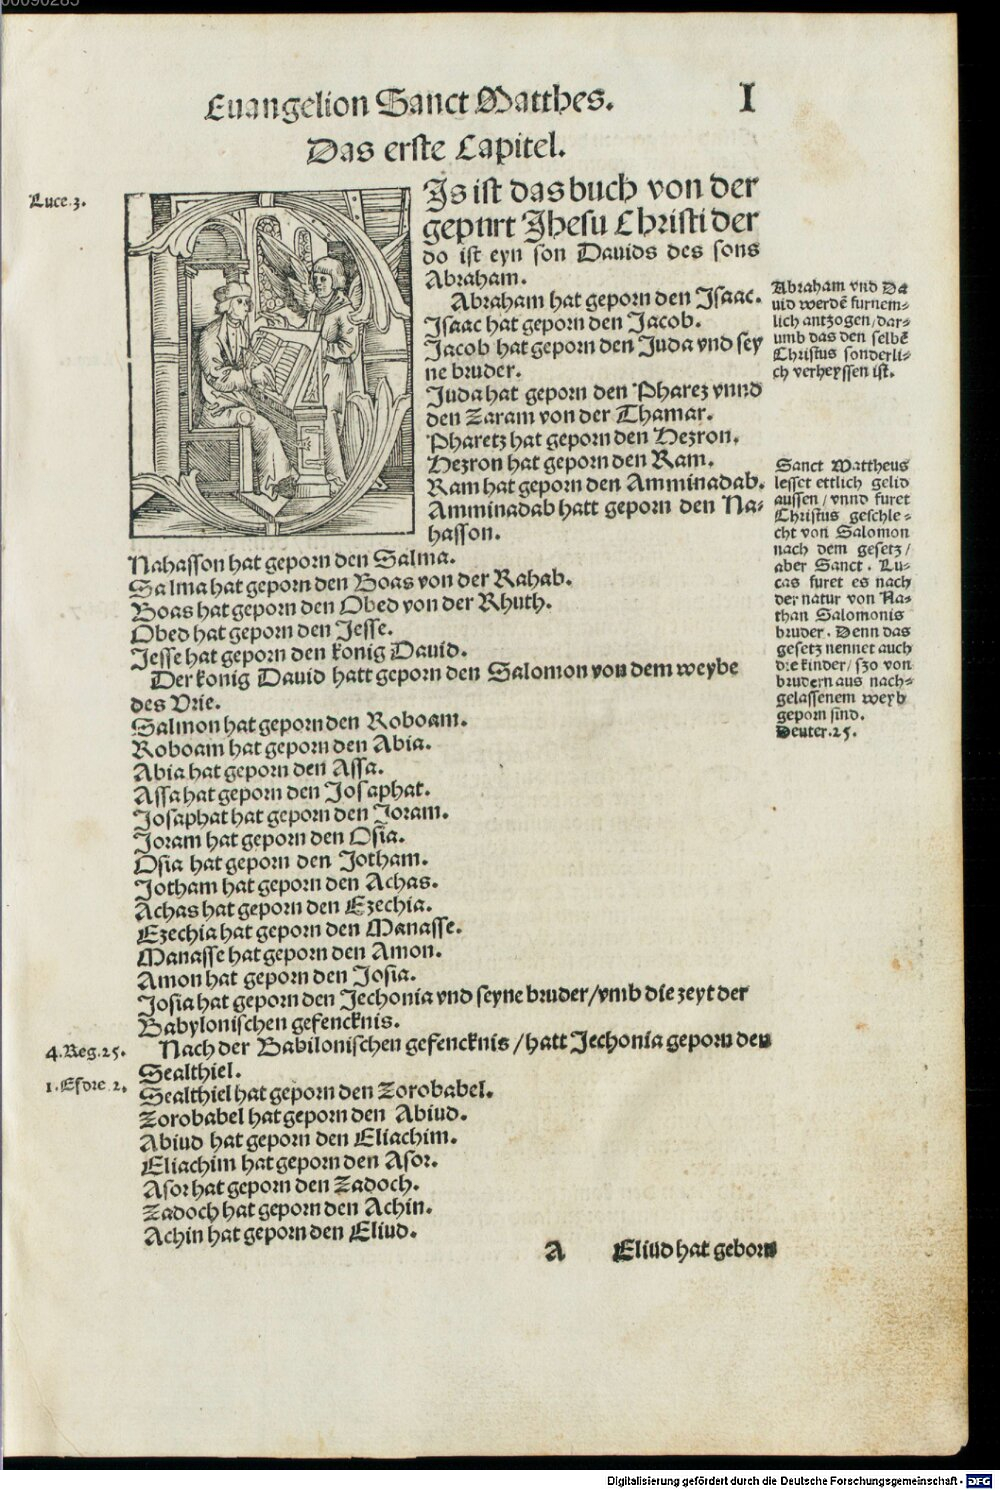 Euangelion Sanct Matthes.
I
Das erste Capitel.
Luce.3.
Is ist das buch von der
gepurt Jhesu Christi der
do ist eyn son Dauids des sons
Abraham.
Abraham hat geporn den Isaac.
Isaac hat geporn den Jacob.
Jacob hat geporn den Juda vnd sey
ne bruder.
Juda hat geporn den Pharez vnnd
den Zaram von der Thamar.
Pharetz hat geporn den Hezron.
Hezron hat geporn den Ram.
Ram hat geporn den Amminadab.
Amminadab hatt geporn den Na-
hasson.
Nahasson hat geporn den Salma.
Salma hat geporn den Boas von der Rahab.
Boas hat geporn den Obed von der Rhuth.
Obed hat geporn den Jesse.
Jesse hat geporn den konig Dauid.
Der konig Dauid hatt geporn den Salomon von dem weybe
des Vrie.
Salmon hat geporn den Roboam.
Roboam hat geporn den Abia.
Abia hat geporn den Assa.
Assa hat geporn den Josaphat.
Josaphat hat geporn den Joram.
Joram hat geporn den Osia.
Osia hat geporn den Jotham.
Jotham hat geporn den Achas.
Achas hat geporn den Ezechia.
Ezechia hat geporn den Manasse.
Manasse hat geporn den Amon.
Amon hat geporn den Josia.
Josia hat geporn den Jechonia vnd seyne bruder/vmb die zeyt der
Babylonischen gefencknis.
4.Reg.25.
Nach der Babilonischen gefencknis/hatt Jechonia geporn den
Sealthiel.
1.Esdre.2.
Sealthiel hat geporn den Zorobabel.
Zorobabel hat geporn den Abiud.
Abiud hat geporn den Eliachim.
Eliachim hat geporn den Asor.
Asor hat geporn den Zadoch.
Zadoch hat geporn den Achin.
Achin hat geporn den Eliud.
A Eliud hat geborn
Abraham vnd Da
uid werdē furnem-
lich antzogen/dar-
umb das den selbē
Christus sonderli-
ch verheyssen ist.
Sanct Mattheus
lesset ettlich gelid
aussen/vnnd furet
Christus geschle-
cht von Salomon
nach dem gesetz/
aber Sanct. Lu-
cas furet es nach
der natur von Na-
than Salomonis
bruder. Denn das
gesetz nennet auch
die kinder/szo von
brudern aus nach-
gelassenem weyb
geporn sind.
Deuter.25.
Digitalisierung gefördert durch die Deutsche Forschungsgemeinschaft - DFG